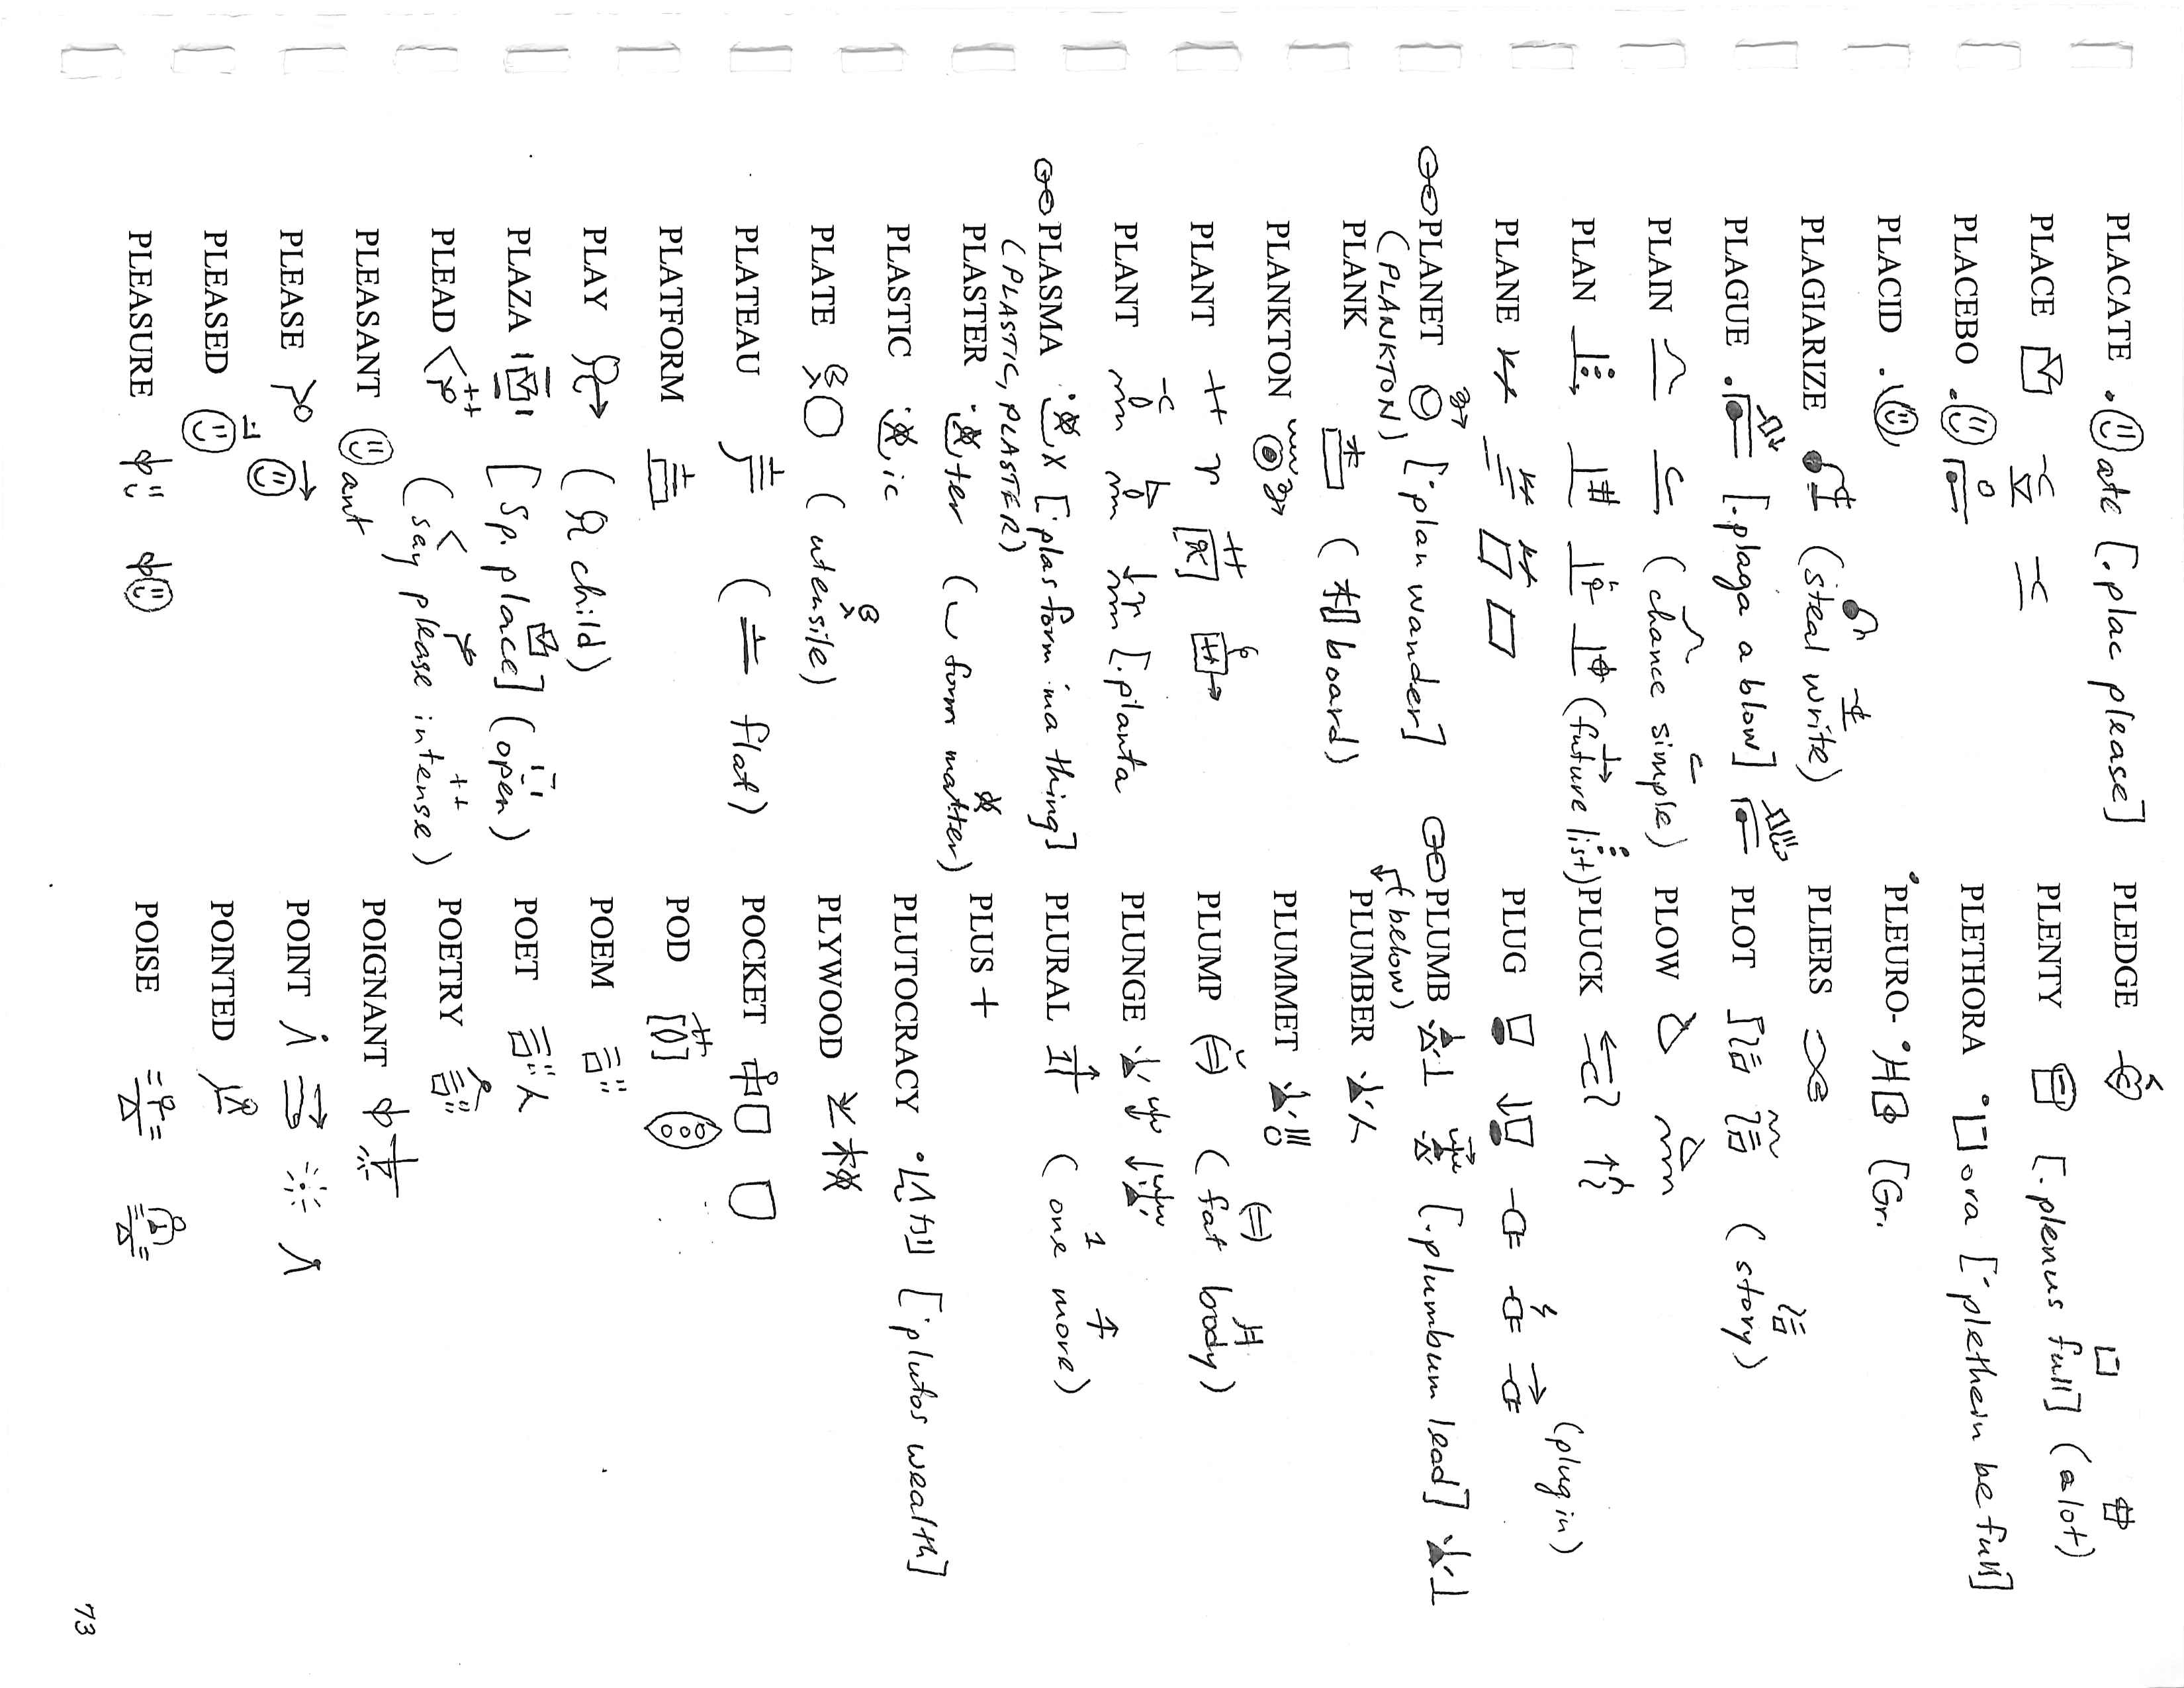 PLACATE .ate [.plac please]
PLACE
PLACEBO
PLACID
PLAGIARIZE (steal write)
PLAGUE [.plaga a blow]
PLAIN (chance simple)
PLAN (future list)
PLANE
PLANET ['plan wander]
(PLANKTON)
PLANK (board)
PLANKTON
PLANT
PLANT [.planta
PLASMA ['plas form in a thing]
(PLASTIC, PLASTER)
PLASTER ter (form matter)
PLASTIC ic
PLATE (utensile)
PLATEAU (flat)
PLATFORM
PLAY (child)
PLAZA [Sp. place] (open)
PLEAD (say please intense)
PLEASANT ant
PLEASE
PLEASED
PLEASURE
PLEDGE
PLENTY [.plenus full] (alot)
PLETHORA ora ['plethein be full]
PLEURO- [Gr.
PLIERS
PLOT (story)
PLOW
PLUCK
PLUG (plug in)
PLUMB [.plumbum lead]
(below)
PLUMBER
PLUMMET
PLUMP (fat body)
PLUNGE
PLURAL (one more)
PLUS +
PLUTOCRACY ['plutos wealth]
PLYWOOD
POCKET
POD
POEM
POET
POETRY
POIGNANT
POINT
POINTED
POISE
73